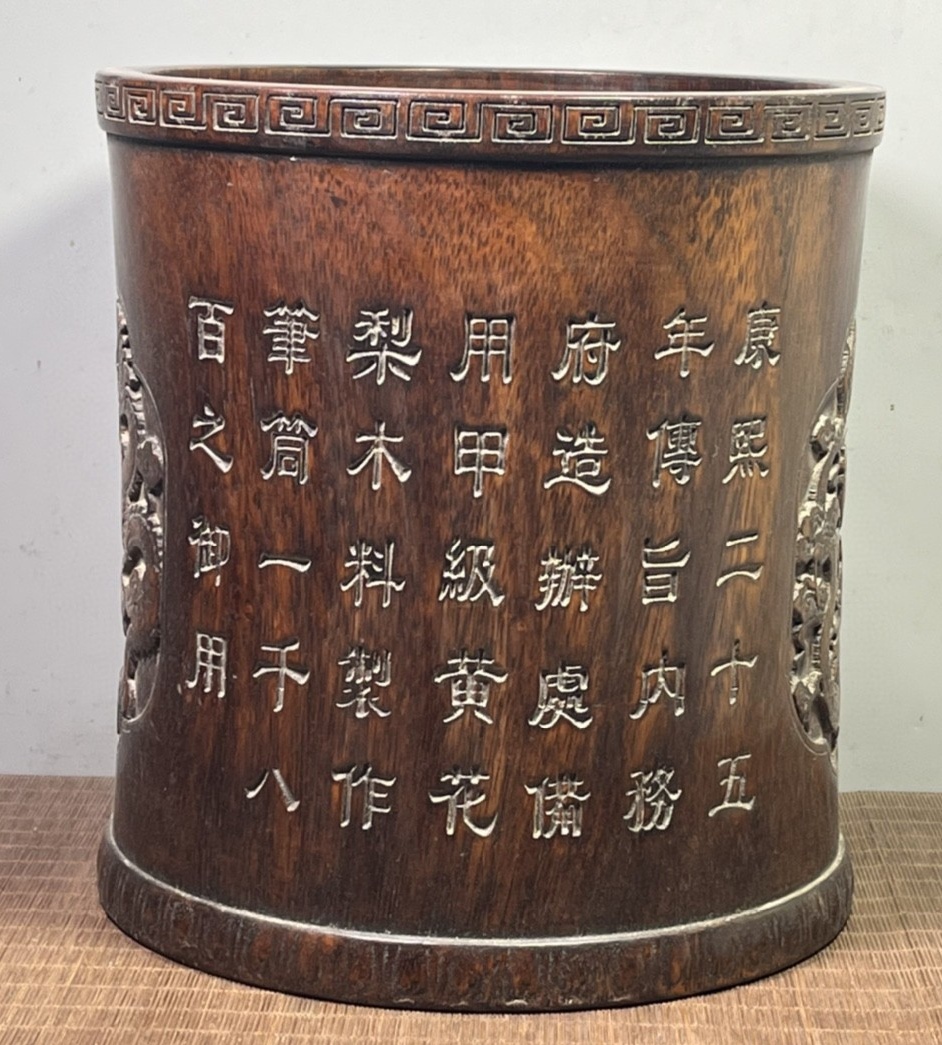 康熙二十五
年傳旨內務
府造辦處備
用甲級黃花
梨木料製作
筆筒一千八
百之御用